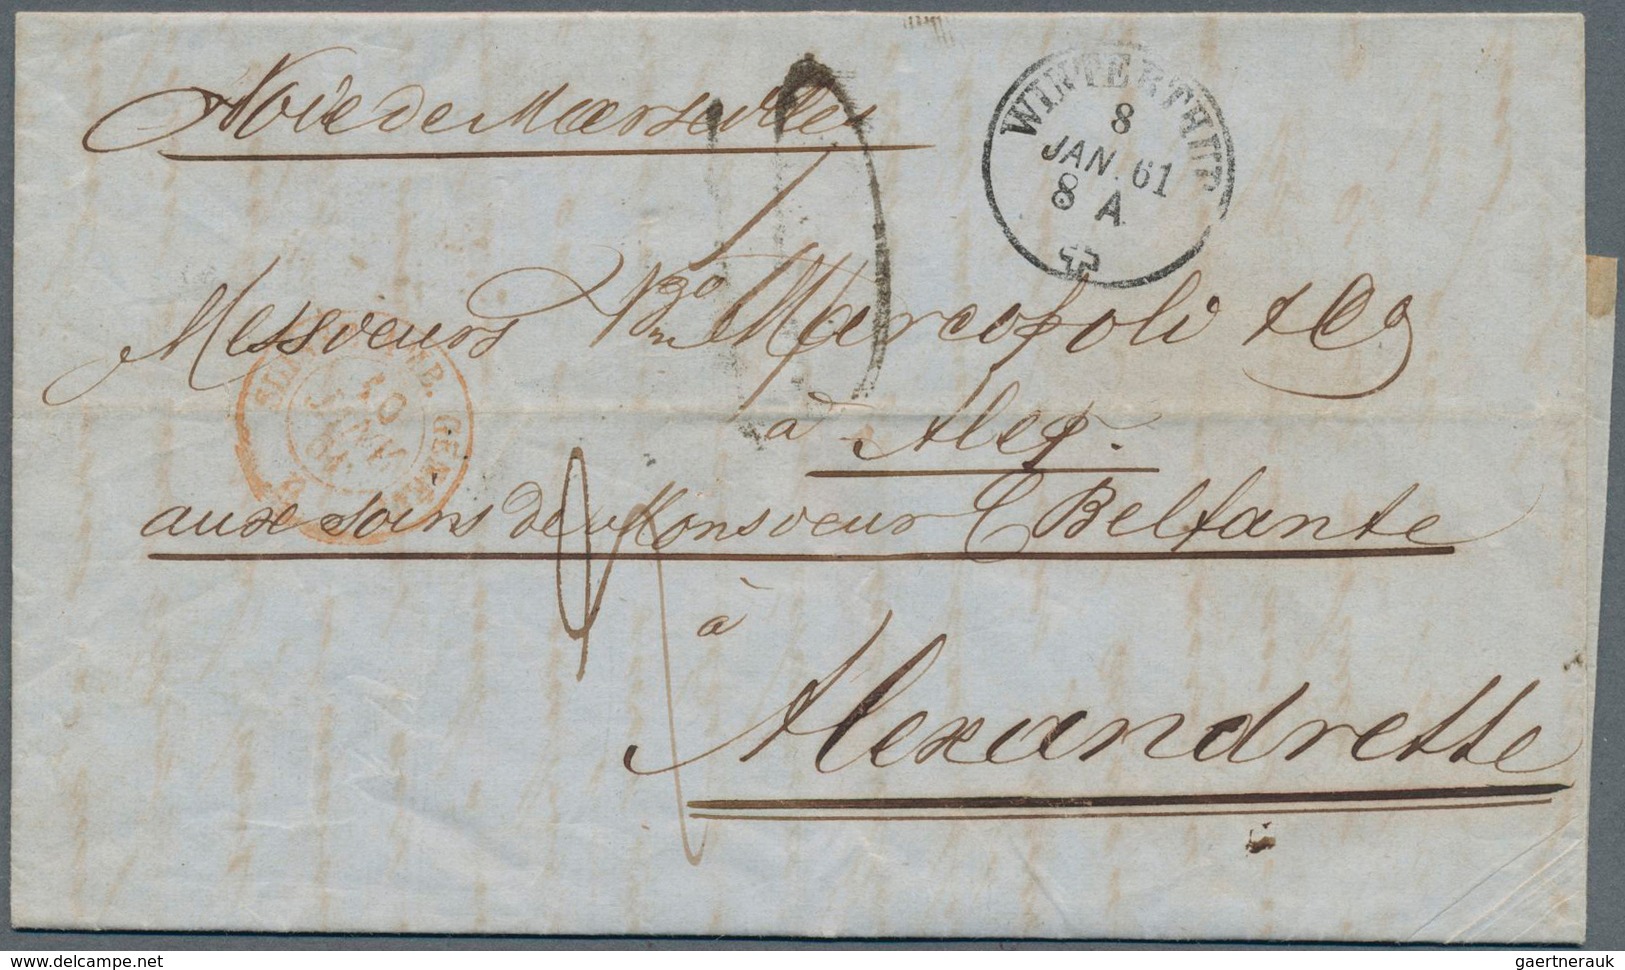 Voie de Marseille
WINTERTHUR
8
JAN. 61
8 A
Messieurs Vzo Marcopoli & Co
10
JANV
61
à Alep.
aux soins de Monsieur C Belfante
à
Alexandrette
delcampe.net
gaertnerauk